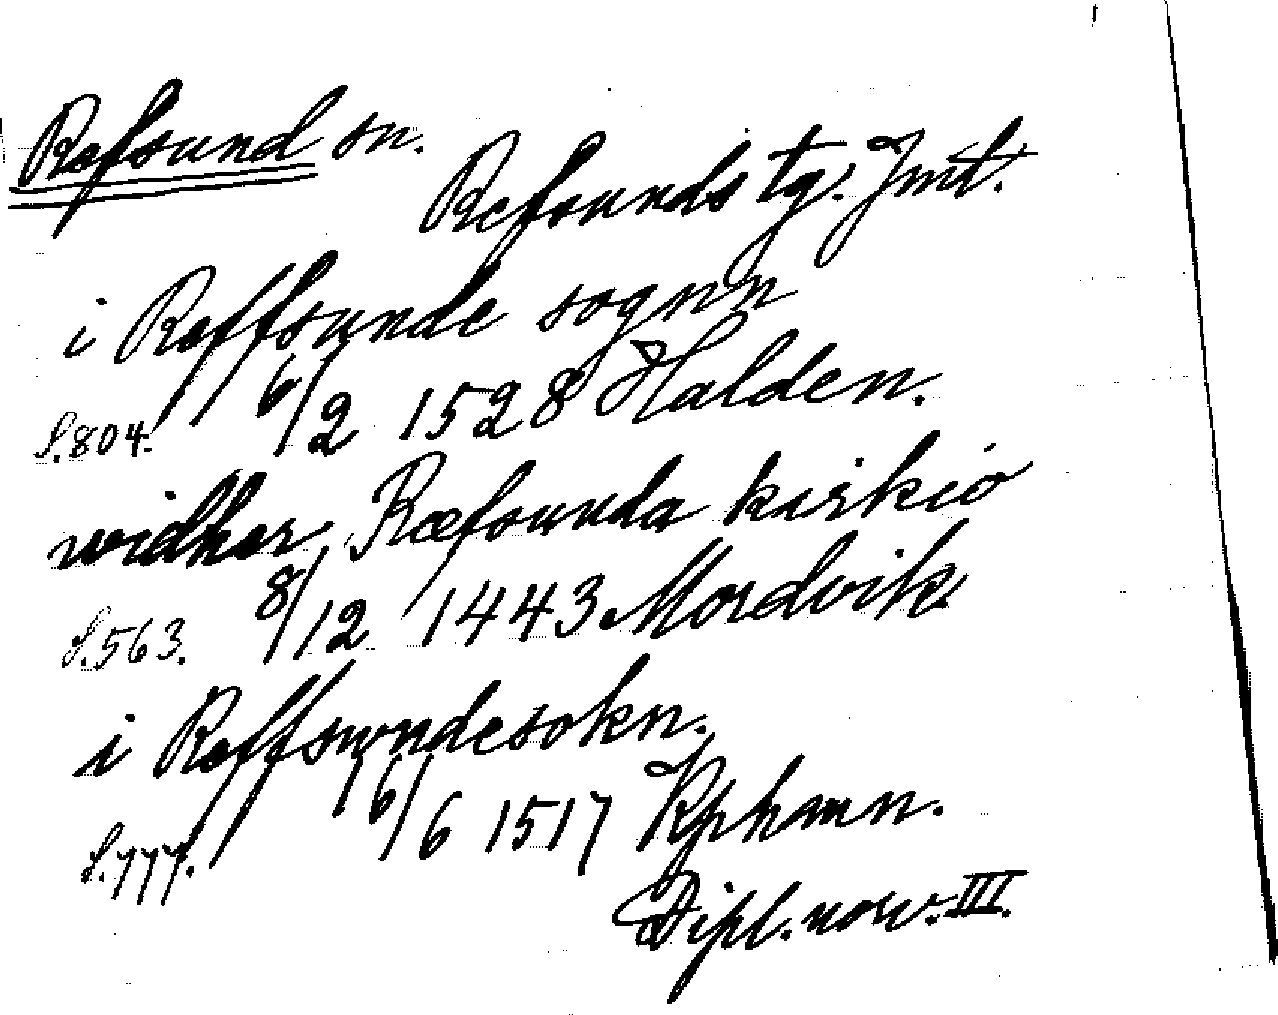 Refsund sn.
Refsunds tg. Jmt.
i Reffsunde sognn
S. 804. 6/2 1528 Halden.
widher Ræfsunda kirkio
S. 563. 8/12 1443 Mordvik
i Reffswndesokn.
S. 777. 16/6 1517 Kphamn.
Dipl. norv. III.